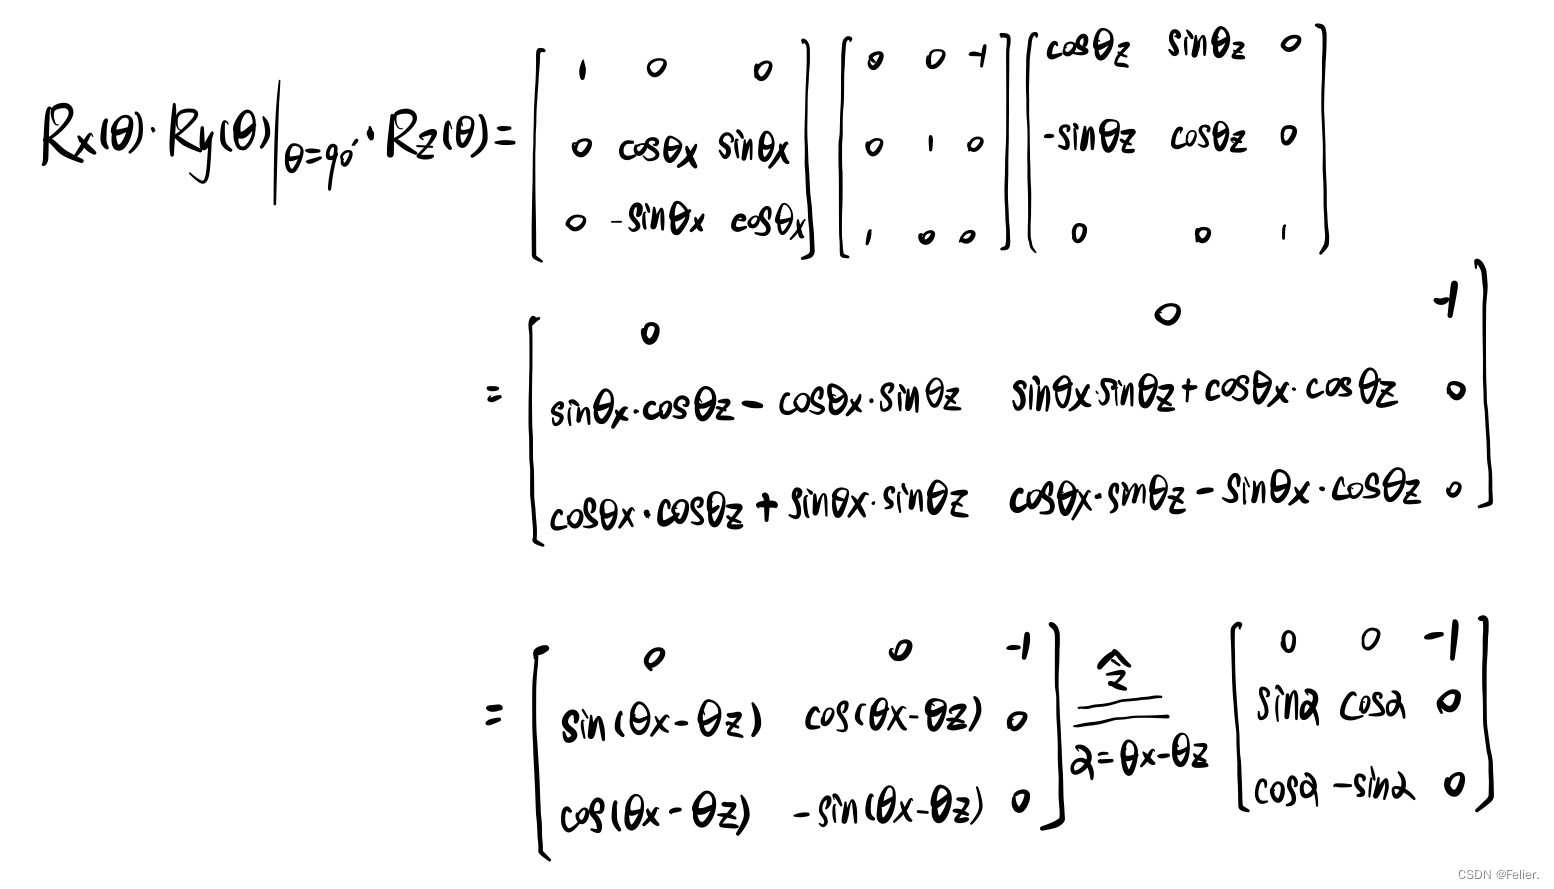 Rx(θ)·Ry(θ)|θ=90°·Rz(θ)= [1 0 0; 0 cosθx sinθx; 0 -sinθx cosθx] [0 0 -1; 0 1 0; 1 0 0] [cosθz sinθz 0; -sinθz cosθz 0; 0 0 1]
= [0 0 -1; sinθx·cosθz - cosθx·sinθz sinθx·sinθz + cosθx·cosθz 0; cosθx·cosθz + sinθx·sinθz cosθx·sinθz - sinθx·cosθz 0]
= [0 0 -1; sin(θx-θz) cos(θx-θz) 0; cos(θx-θz) -sin(θx-θz) 0] 令 α=θx-θz [0 0 -1; sinα cosα 0; cosα -sinα 0]
CSDN @Felier.